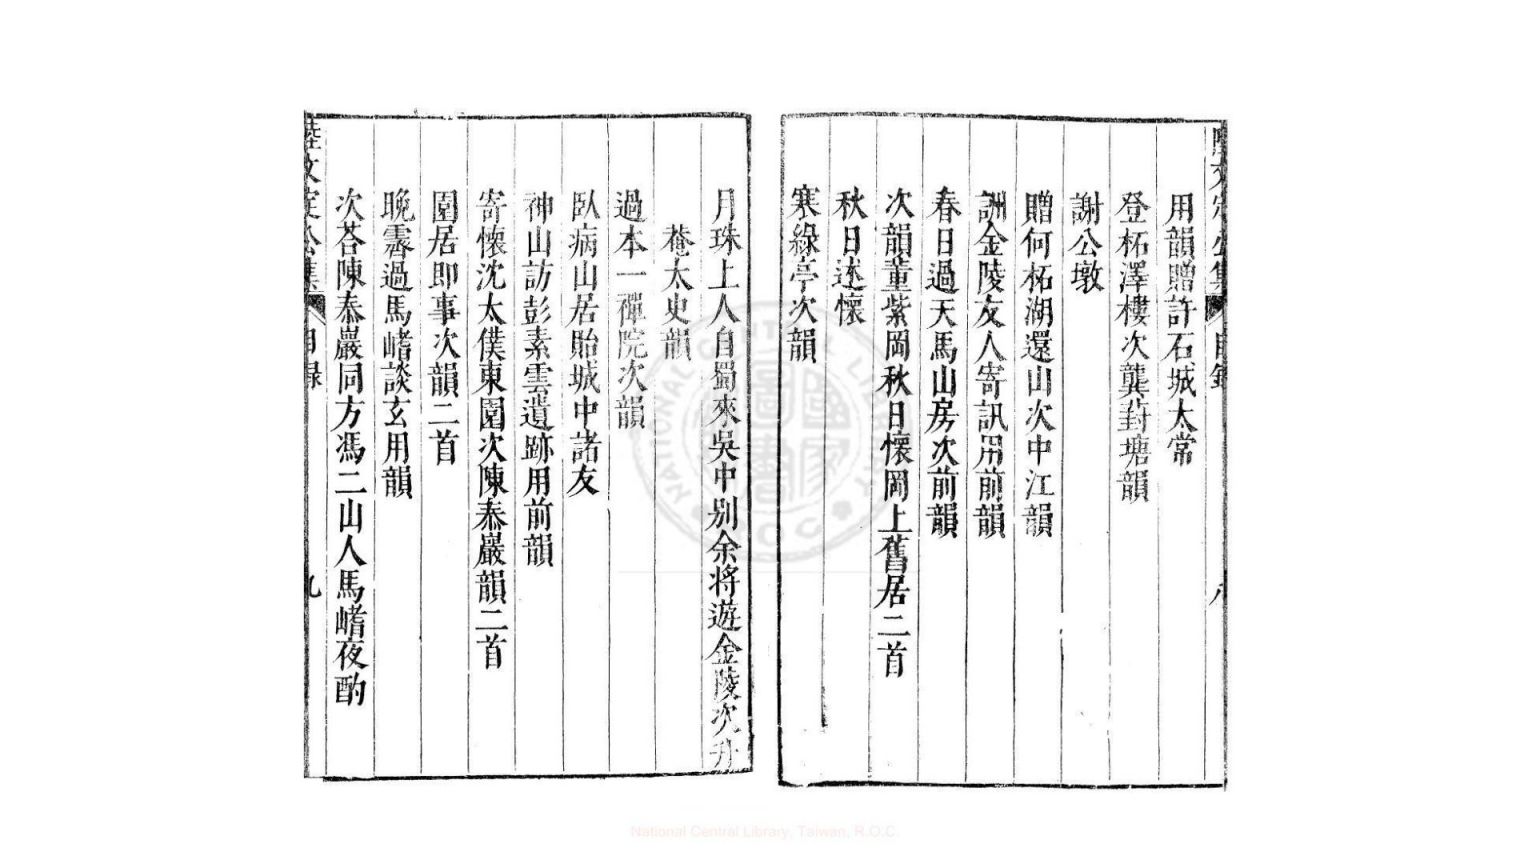 用韻贈許石城太常
登柘澤樓次龔對塘韻
謝公墩
贈何柘湖還山次中江韻
詶金陵友人寄訊用前韻
春日過天馬山房次前韻
次韻董紫岡秋日懷岡上舊居二首
秋日述懷
寒綠亭次韻
月珠上人自蜀來吳中別余将遊金陵次升
菴太史韻
過本一禪院次韻
臥病山居貽城中諸友
神山訪彭素雲遺跡用前韻
寄懷沈太僕東園次陳泰巖韻二首
園居即事次韻二首
晚霽過馬嵴談玄用韻
次荅陳泰巖同方馮二山人馬嵴夜酌
陸文定公集
目録
九
National Central Library, Taiwan, R.O.C.